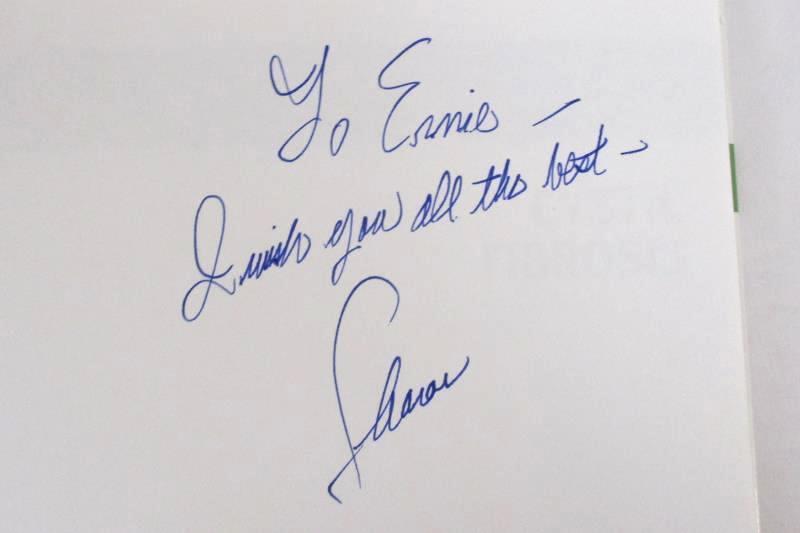 To Ernie —
I wish you all the best -
Sharon